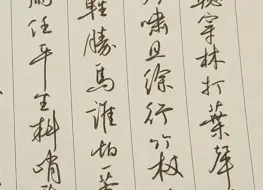 聽穿林打葉聲
嘯且徐行竹杖
輕勝馬誰怕一
雨任平生料峭